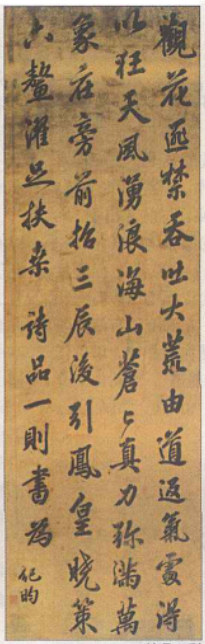 觀花匪禁吞吐大荒由道返氣處得
以狂天風湧浪海山蒼〻真力弥滿萬
象在旁前招三辰後引鳳皇曉策
六鼇濯足扶桒 詩品一則書為
紀昀